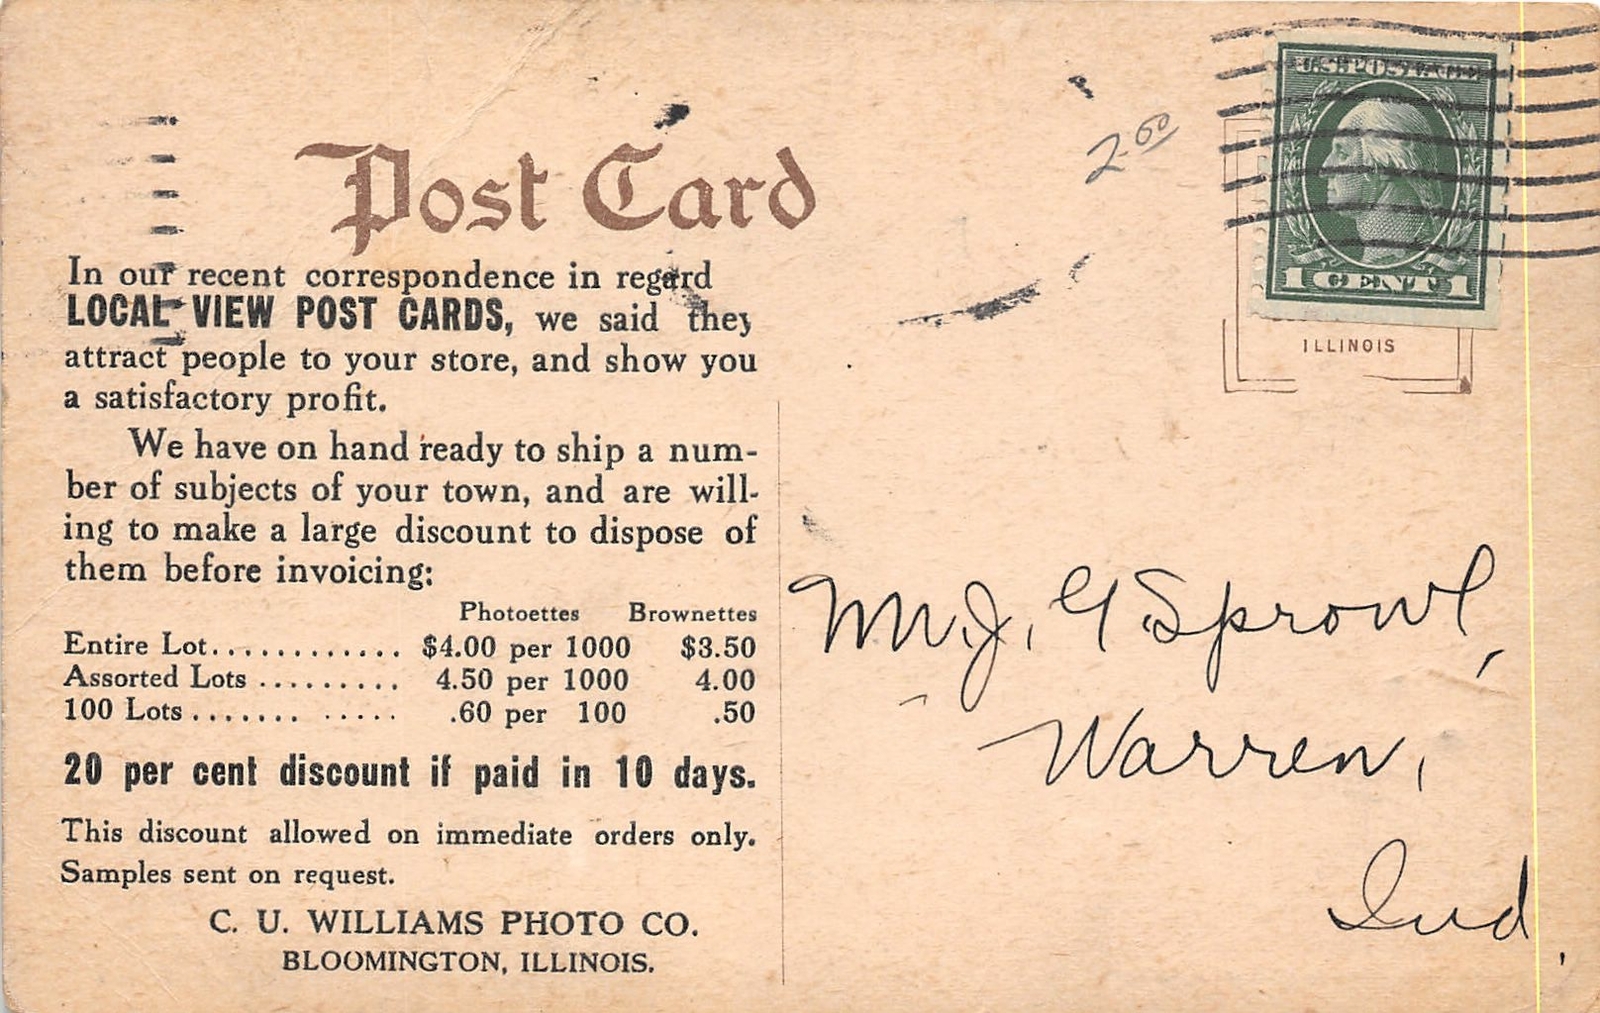 Post Card
In our recent correspondence in regard
LOCAL VIEW POST CARDS, we said they
attract people to your store, and show you
a satisfactory profit.
We have on hand ready to ship a num-
ber of subjects of your town, and are will-
ing to make a large discount to dispose of
them before invoicing:
Photoettes Brownettes
Entire Lot............ $4.00 per 1000 $3.50
Assorted Lots ......... 4.50 per 1000 4.00
100 Lots ....... ..... .60 per 100 .50
20 per cent discount if paid in 10 days.
This discount allowed on immediate orders only.
Samples sent on request.
C. U. WILLIAMS PHOTO CO.
BLOOMINGTON, ILLINOIS.
2.00
U.S. POSTAGE
1 CENT 1
ILLINOIS
Mr. J. G. Sprowl,
Warren,
Ind.